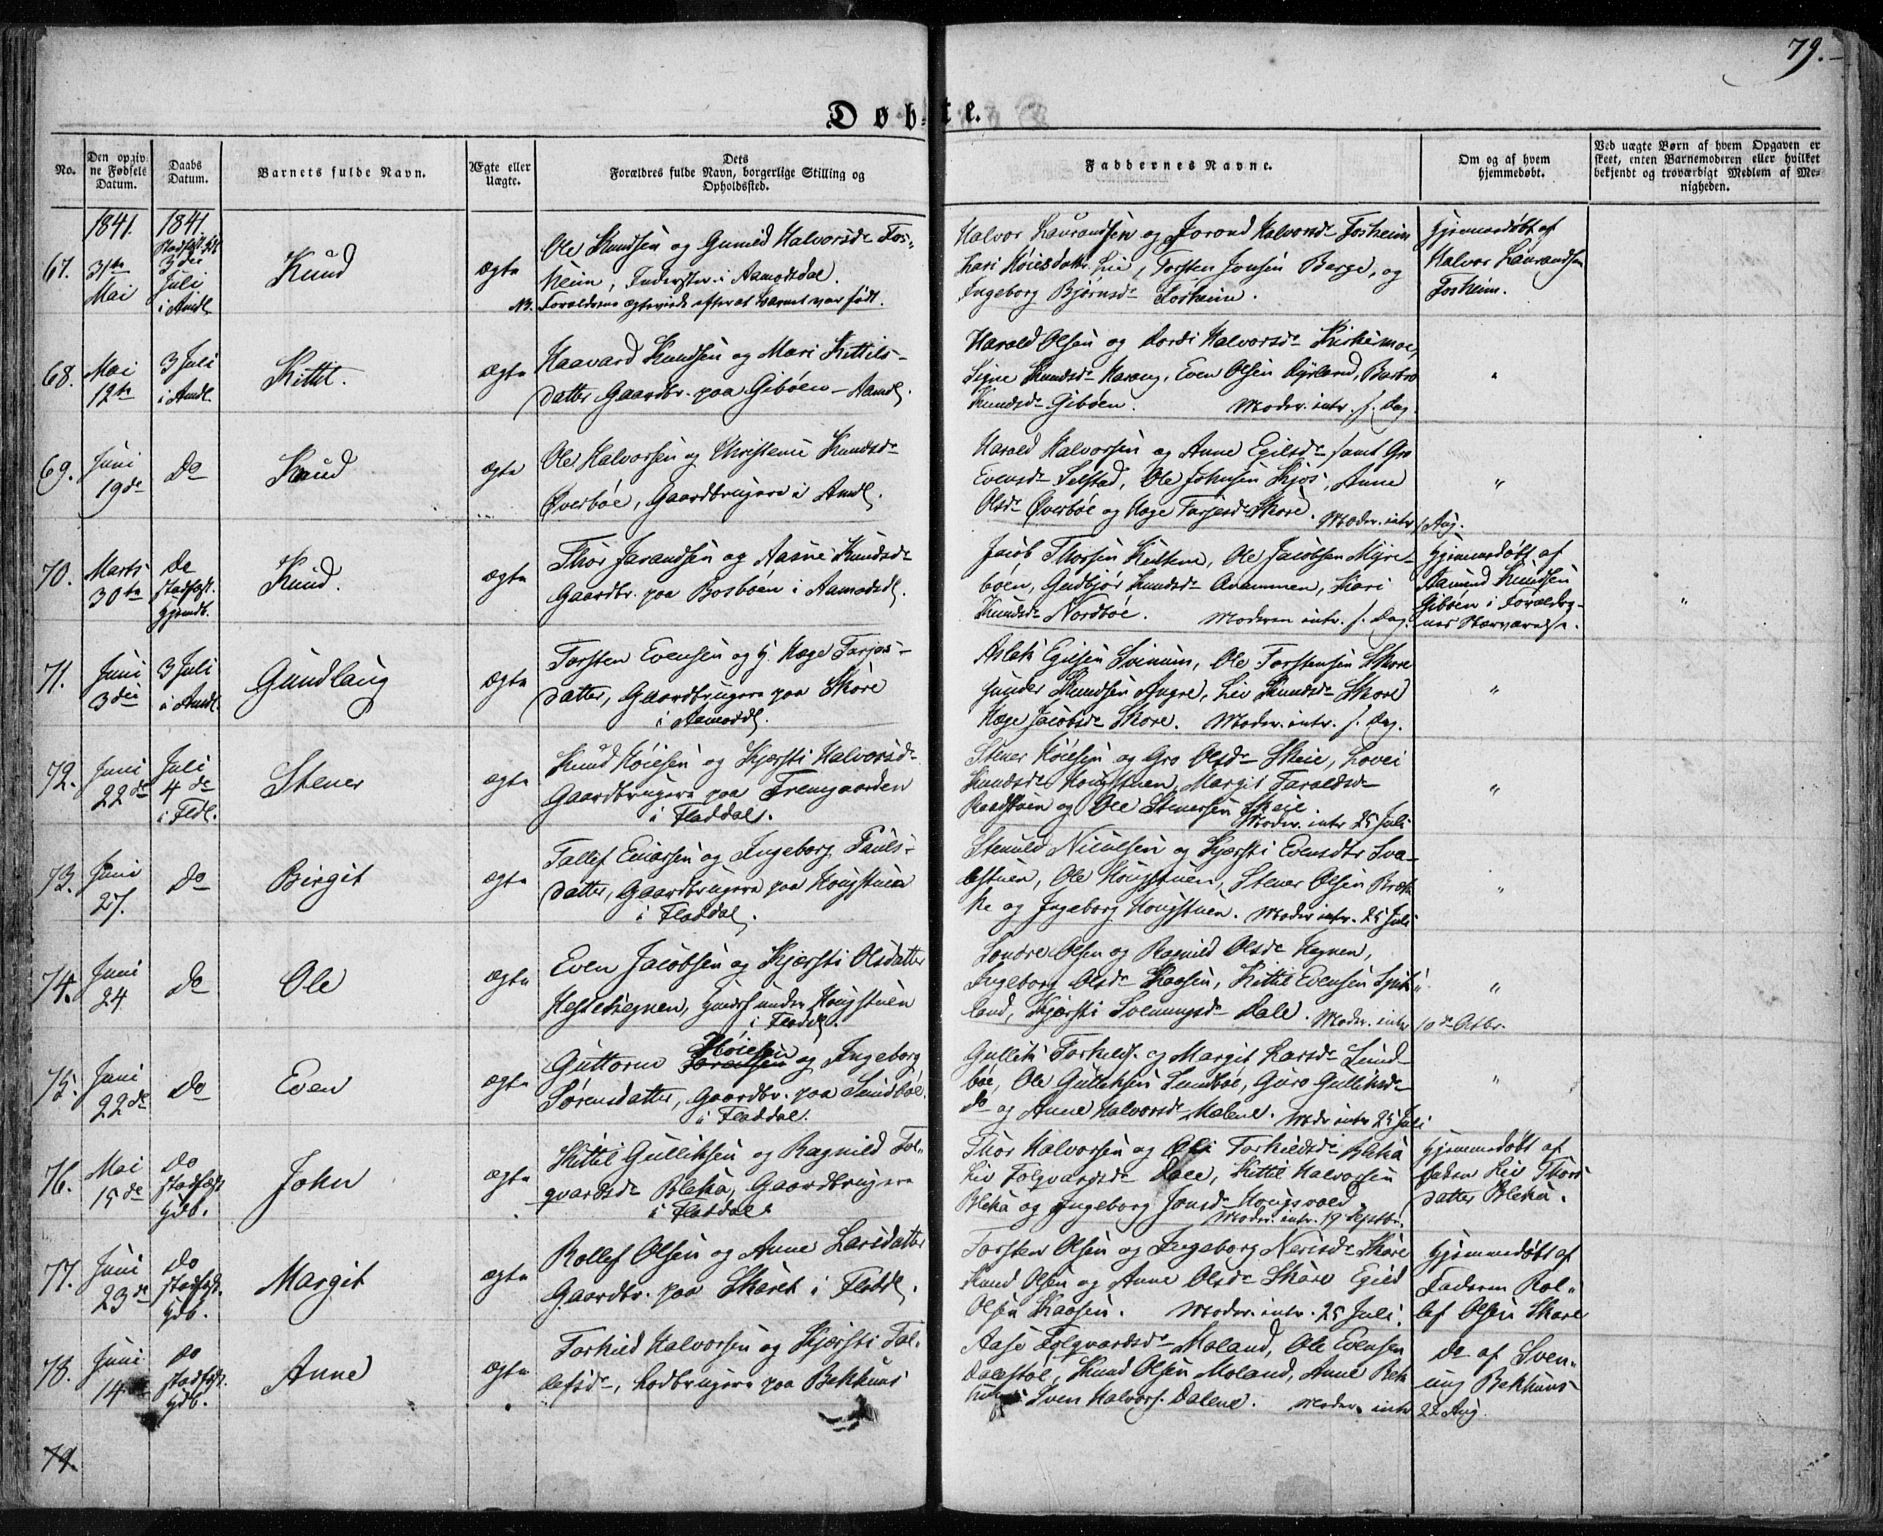 79.
Døbte.
No.
Den opgivne Fødsels Datum.
Daabs Datum.
Barnets fulde Navn.
Ægte eller Uægte.
Dets Forældres fulde Navn, borgerlige Stilling og Opholdssted.
Faddernes Navne.
Om og af hvem hjemmedøbt.
Ved uægte Børn af hvem Opgaven er skeet, enten Barnemoderen eller hvilket bekjendt og troværdigt Medlem af Menigheden.
1841.
1841.
67.
31te Mai
3die Juli i Amdl
Knud
ægte
Ole Knudsen og Gunild Halvorsdr Fos-
heim, Inderster i Aamodsdal.
NB. Forældrene ægteviede efterat barnet var født.
Halvor Laurandsen og Jorond Halvorsdr Fosheim
Kari Høiesdatter Lie, Torsten Jonsen Berge, og
Ingeborg Bjørnsdr Fosheim.
Hjemmedøbt af
Halvor Laurandsen
Fosheim.
68.
Mai 12te
3 Juli i Amdl.
Kittil.
ægte
Haavard Knudsen og Mari Kittils-
datter Gaardbr. paa Gibøen - Aamdl.
Harald Olsen og Dordi Halvorsdr Kirkemoe,
Signe Knudsdr Haang, Even Olsen Dyrland, Barbro
Knudsdr Gibøen. Moder. intr. s. Dag.
"
69.
Juni 19de
Do
Knud
ægte
Ole Halvorsen og Christense Knudsdr
Øverbøe, Gaardbrugere i Amdl.
Harald Halvorsen og Anne Egilsdr samt Gro
Evensdr Selstad, Ole Johnsen Kjos, Anne
Olsdr Øverbøe og Hæge Tarjesdr Skore. Moder. intr 1 Aug.
"
70.
Marts 30te
Do stadfæst. hjemdb.
Knud.
ægte
Thor Jarandsen og Aasne Knudsdr
Gaardbr. paa Bosbøen i Aamodsdl.
Jacob Thorsen, Ole Jacobsen Myre-
bøen, Gudbjør Knudsdr, Kari
Knudsdr Nordbøe. Moderen intr. s. Dag.
Hjemmedøbt af
Aamund Knudsen
Gibøen i Forældre-
nes Nærværelse.
"
71.
Juni 3die
3 Juli i Amdl.
Gundlaug
ægte
Torsten Evensen og H. Hæge Tarjes-
datter, Gaardbrugere paa Skore
i Aamotsdl.
Aslak Egilsen Svinum, Ole Torstensen Skore
Gunder Knudsen Augre, Liv Knudsdr Skore
Hæge Jacobsdr Skore. Moder. intr. s. Dag.
"
72.
Juni 22de
Juli 4de i Fldl.
Stener
ægte
Knud Høiesen og Kjærsti Halvorsdr
Gaardbrugere paa Fremgaarden
i Fladdal.
Stener Høiesen og Gro Olsdr Skeie, Lovei
Knudsdr Hougstuen, Margit Taraldsdr
Raadstuen og Ole Stenersen Skeie.
Moder. intr 25 Juli
"
73.
Juni 27.
Do
Birgit
ægte
Tallef Einarsen og Ingeborg Pauls-
datter, Gaardbrugere paa Hougstuen
i Fladdal.
Stenuld Niculsen og Kjersti Evensdtr Sva-
lestuen, Ole Hougstuen, Stener Olsen Bræk-
ke og Ingeborg Hougstuen. Moder intr. 25 Juli
"
74.
Juni 24
Do
Ole
ægte
Even Jacobsen og Kjersti Olsdatter
Hestehegnen, Huusf. under Hougstuen
i Fladdl.
Sondre Olsen og Ragnild Olsdr Hegnen,
Ingeborg Olsdr Kaasen, Kittil Evensen
land, Kjersti Svenungsdr Dale. Moder. intr 10de Octbr.
"
75.
Juni 22de
Do
Even
ægte
Guttorm Høiesen og Ingeborg
Sørensdatter, Gaardbr. paa Sundbøe.
i Fladdal.
Gullik Torkilds. og Margit Larsdr Sund-
bøe, Ole Gulliksen Sundbøe, Guro Gulliksdr
Do og Anne Halvorsdr Malene. Moder intr 25 Juli
"
76.
Mai 15de
Do stadfæst hjdb.
John
ægte
Kittil Gulliksen og Ragnild Fol-
qvardsdr Bleka, Gaardbrugere
i Fladdal.
Thor Halvorsen og Torkildsdr Bleka
Liv Folqvardsdr Dale, Kittil Halvorsen
Bleka og Ingeborg Jonsdr Hougsvold
Moder. intr. 19 Septbr.
Hjemmedøbt af
Liv Thors
datter Bleka.
77.
Juni 23de
Do stadfæst. hjdb.
Margit
ægte
Rollef Olsen og Anne Larsdatter
Gaardbr. paa Skaret i Fladdl.
Torsten Olsen og Ingeborg Nerisdr Skore
Knud Olsen og Anne Olsdr Skore Egild
Olsen Kaasen. Moder. intr. 25 Juli.
Hjemmedøbt af
Faderen Rol-
lef Olsen Skore
78.
Juni 14de
Do stadfæst. hjdb.
Anne
ægte
Torkild Halvorsen og Kjersti Tol-
lefsdr, Lodbrugere paa Bekhuus
Aase Folqvardsdr Moland, Ole Evensen
Dalestøl, Knud Olsen Moland, Anne Bek
huus, Sven Halvors. Dalene. Moder. intr 22 Aug.
Do af Sven-
ung Bekhuus
79.